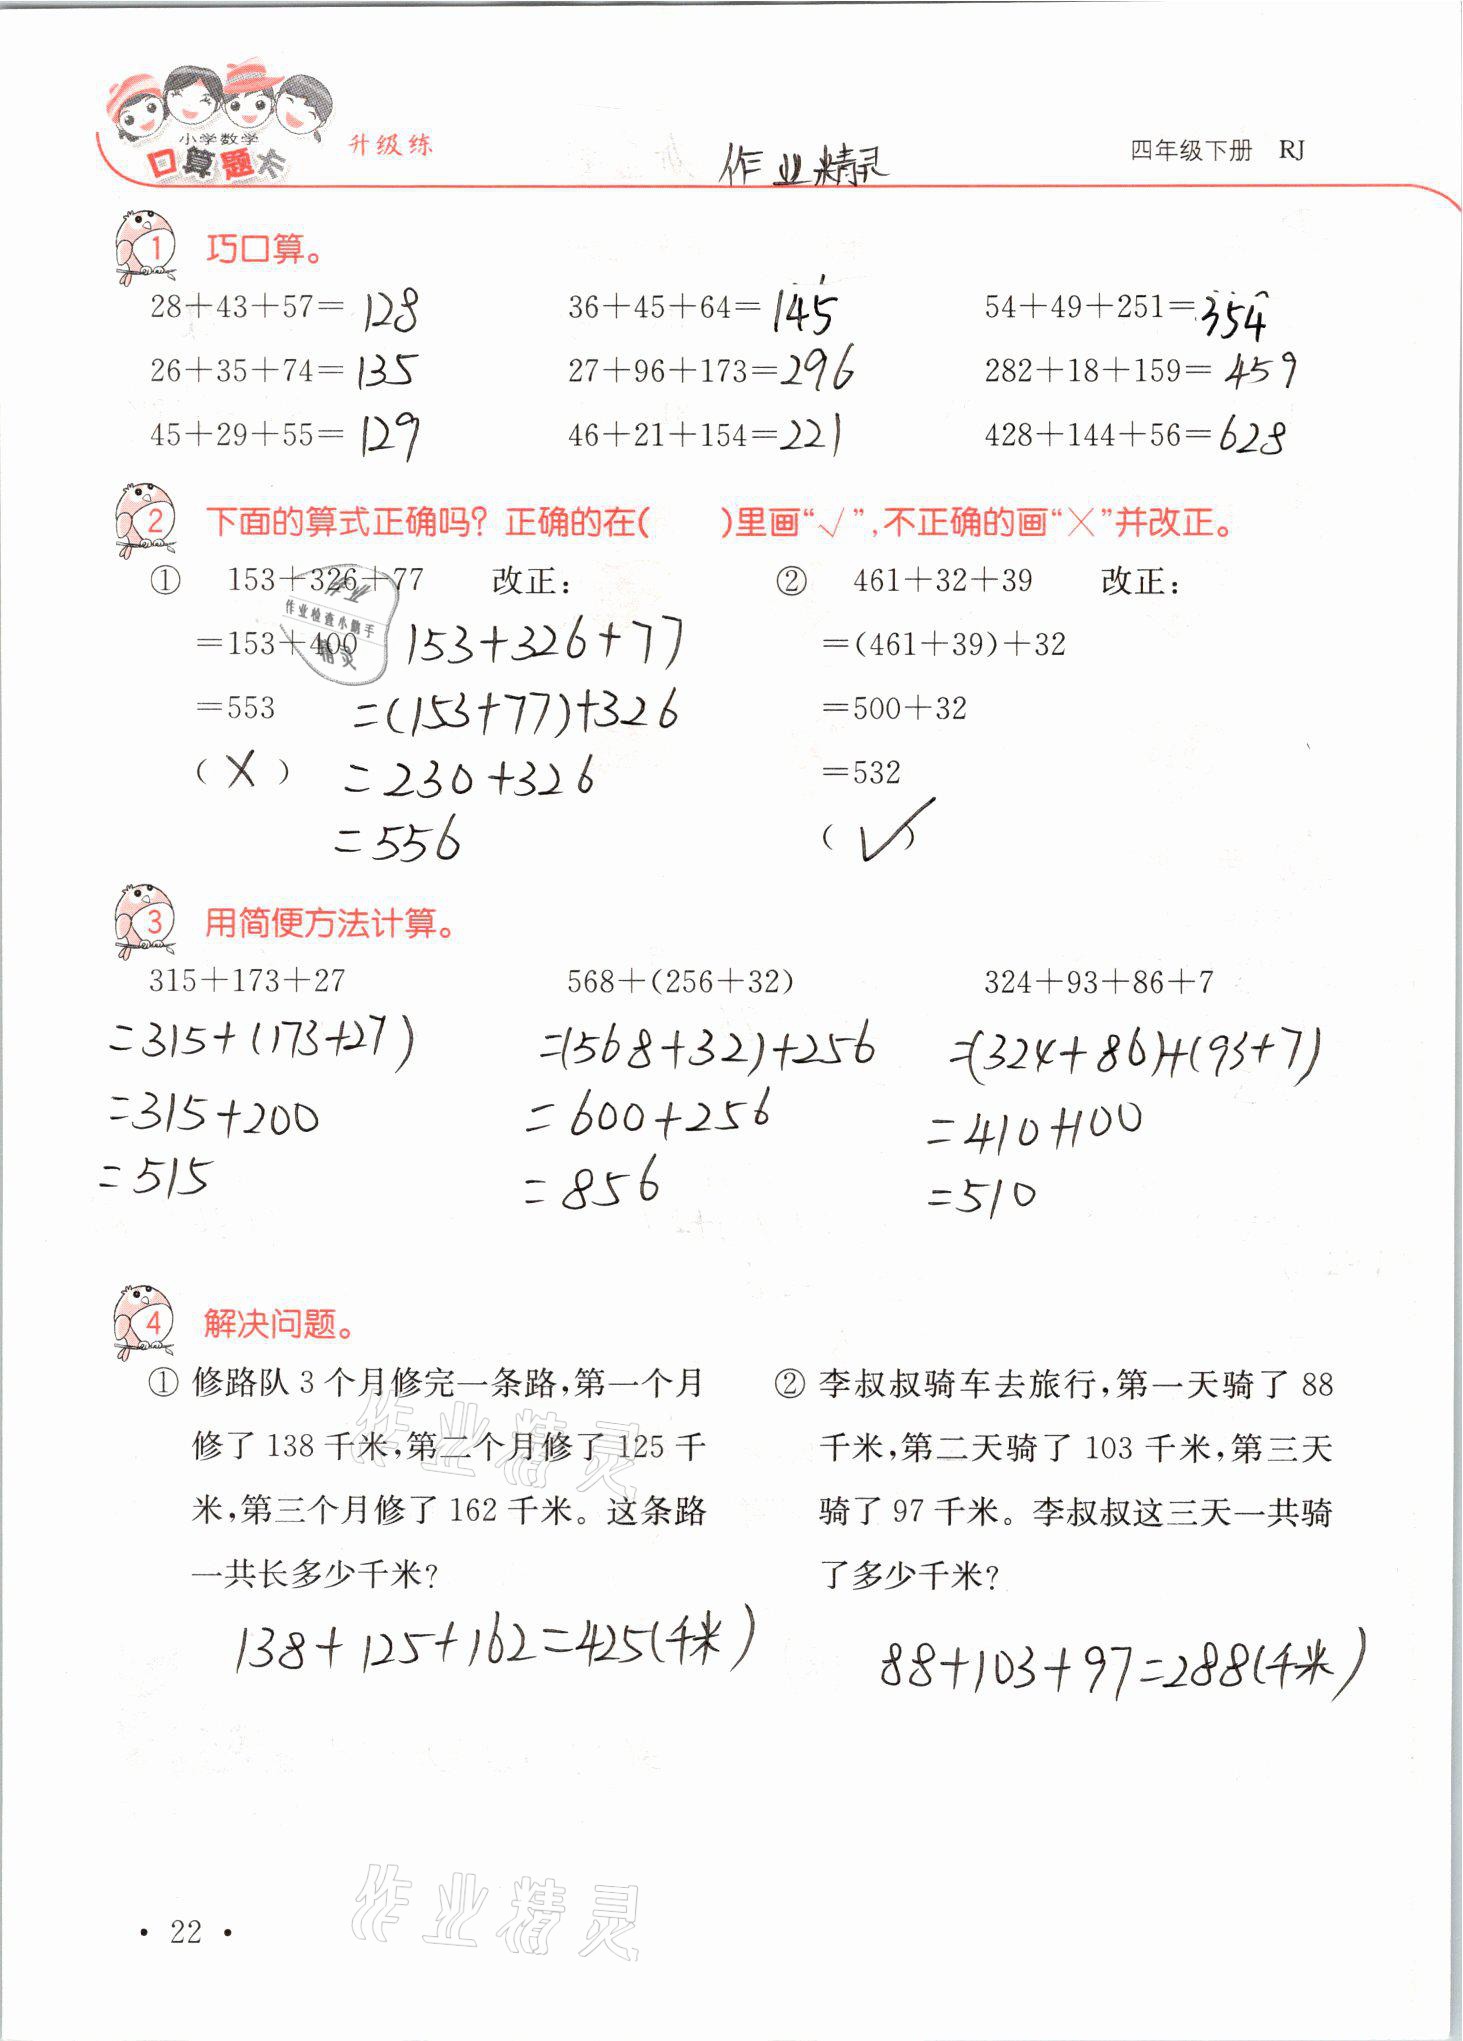 小学数学
口算题卡 升级练 作业精灵 四年级下册 RJ
1 巧口算。
28+43+57=128 36+45+64=145 54+49+251=354
26+35+74=135 27+96+173=296 282+18+159=459
45+29+55=129 46+21+154=221 428+144+56=628
2 下面的算式正确吗？正确的在( )里画“√”,不正确的画“×”并改正。
① 153+326+77 改正: ② 461+32+39 改正:
=153+400 153+326+77 =(461+39)+32
=553 =(153+77)+326 =500+32
(×) =230+326 =532
=556 (√)
作业
作业检查小助手
精灵
3 用简便方法计算。
315+173+27 568+(256+32) 324+93+86+7
=315+(173+27) =(568+32)+256 =(324+86)+(93+7)
=315+200 =600+256 =410+100
=515 =856 =510
4 解决问题。
① 修路队3个月修完一条路,第一个月
修了138千米,第二个月修了125千
米,第三个月修了162千米。这条路
一共长多少千米?
138+125+162=425(千米)
② 李叔叔骑车去旅行,第一天骑了88
千米,第二天骑了103千米,第三天
骑了97千米。李叔叔这三天一共骑
了多少千米?
88+103+97=288(千米)
作业精灵
作业精灵
· 22 ·